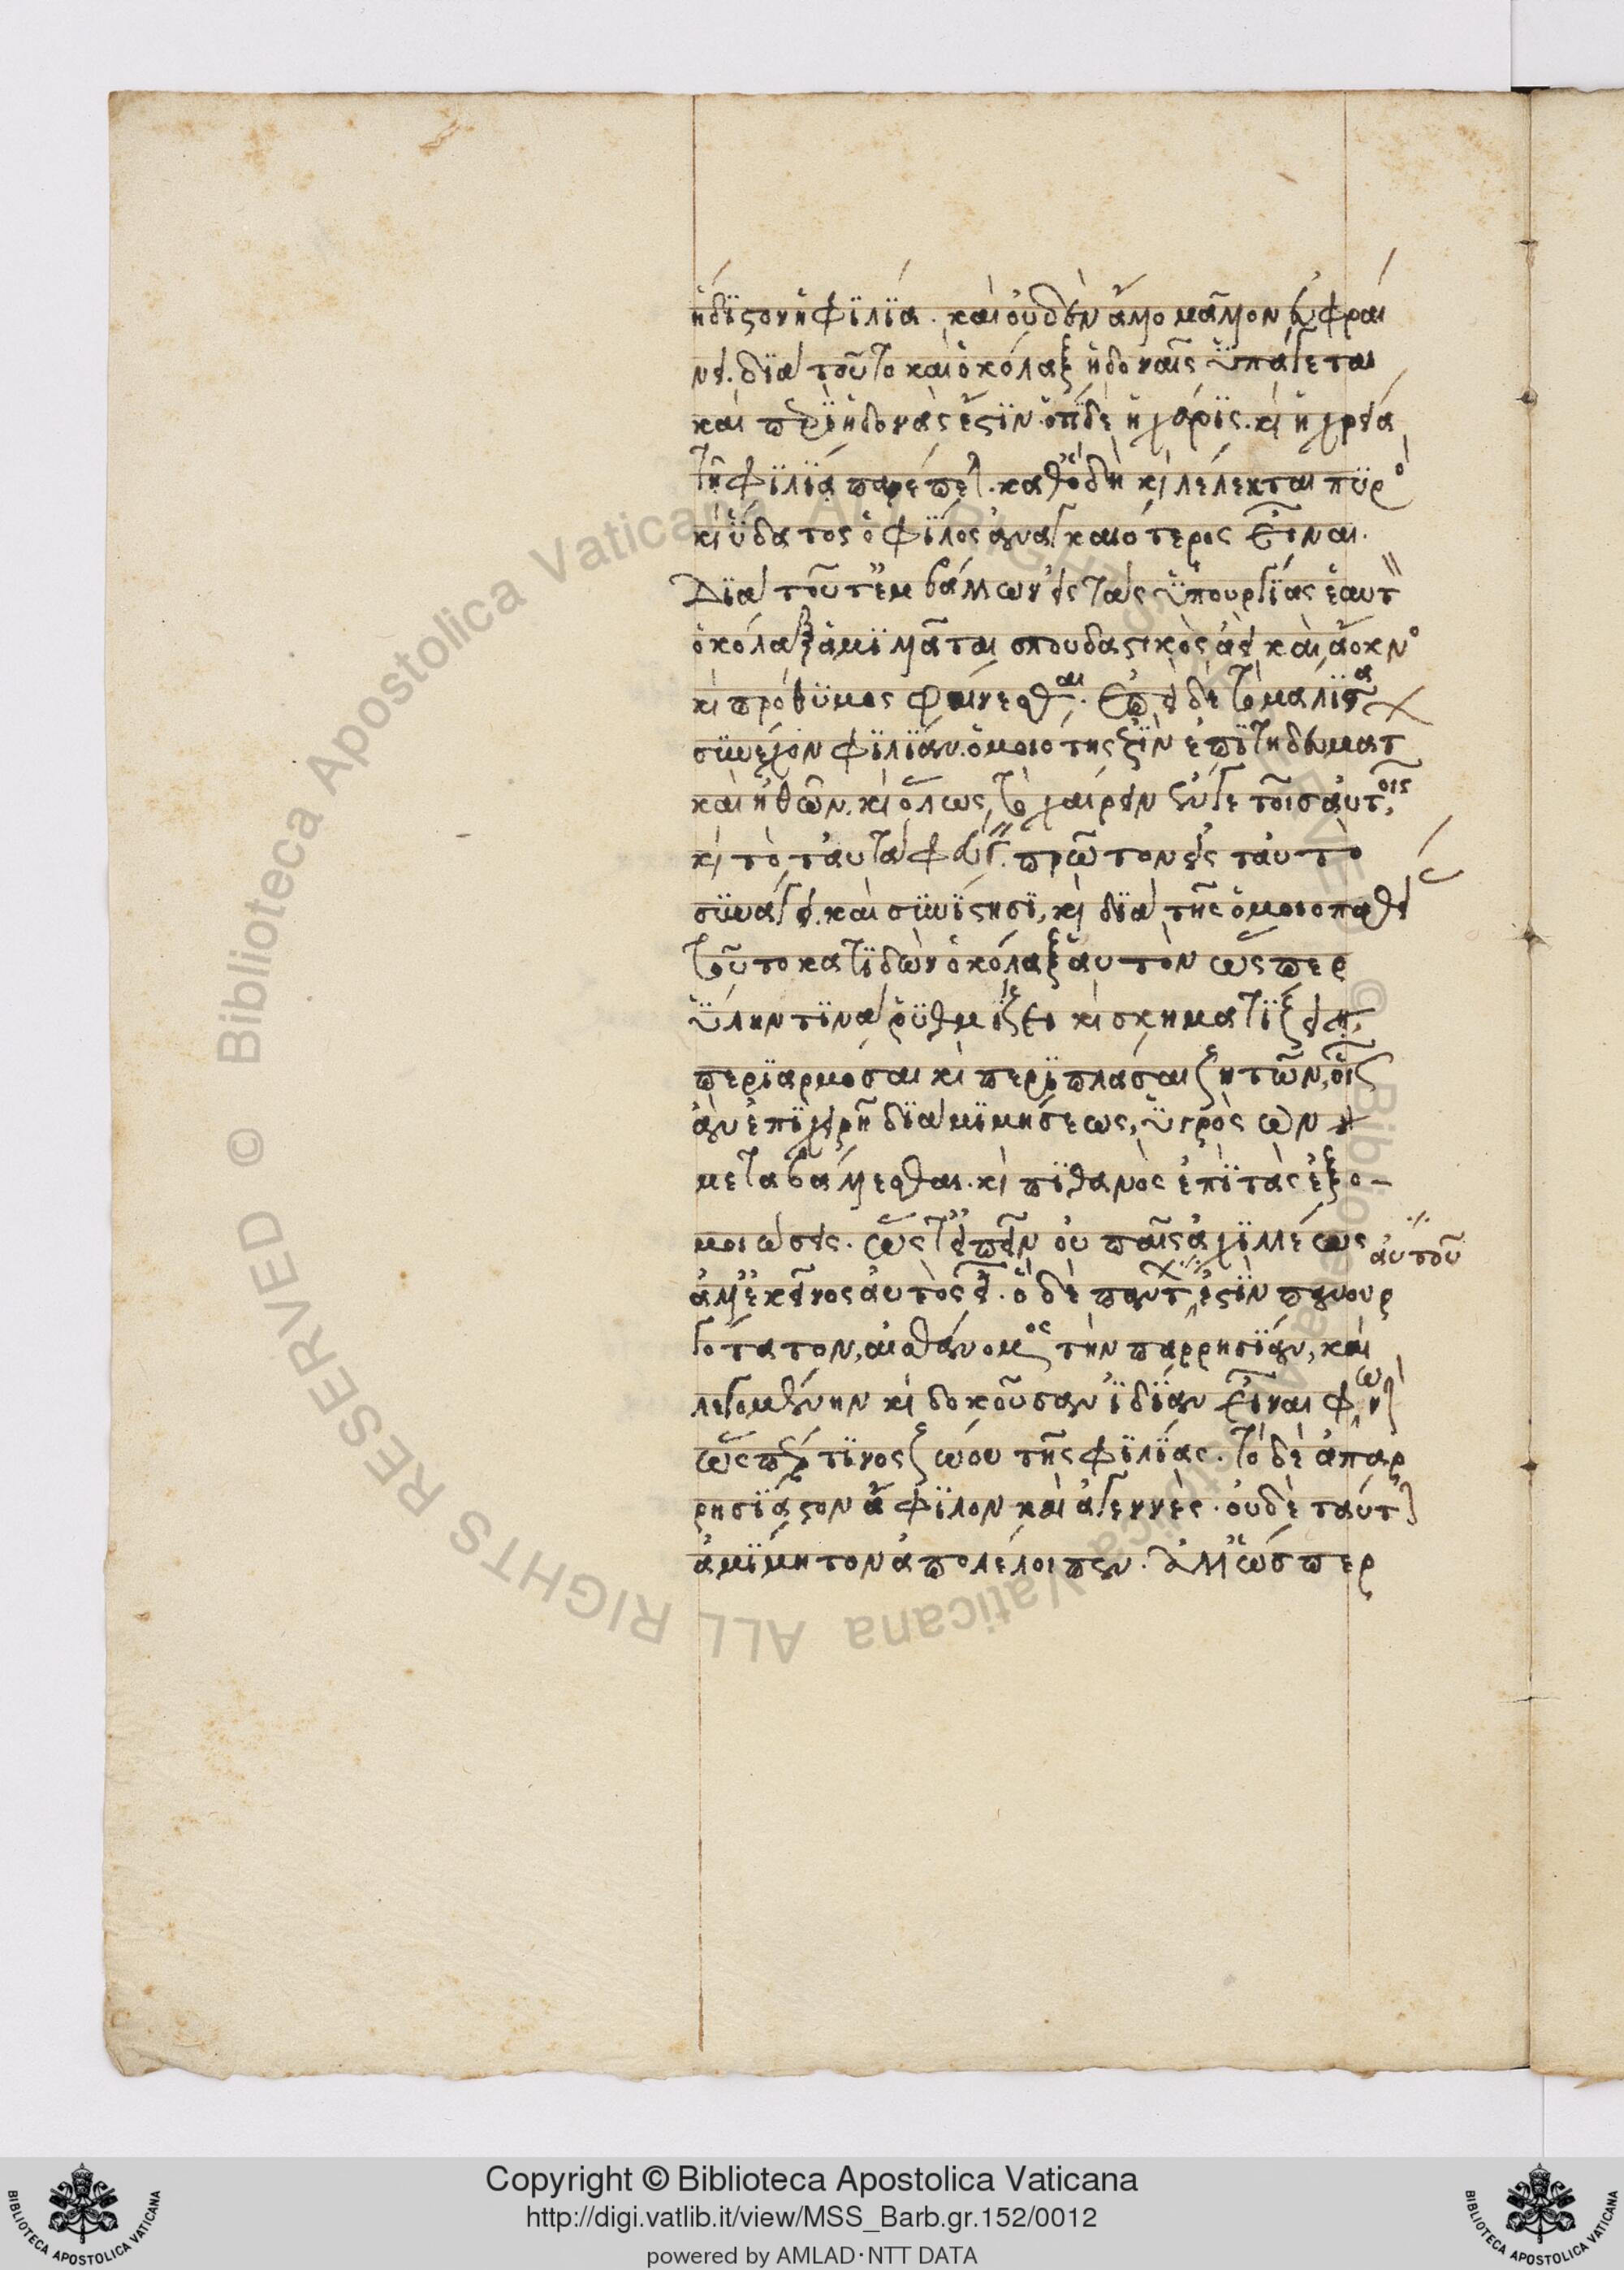 ἥδιστον ἡ φιλία. καὶ οὐδὲν ἄλλο μᾶλλον εὐφραί
νει. διὰ τοῦτο καὶ ὁ κόλαξ ἡδοναῖς ὑπάγεται
καὶ περὶ ἡδονάς ἐστιν. ὅτι δὲ ἡ χάρις. κὶ ἡ χρεία
τῇ φιλίᾳ παρέπεται. καθὸ δὴ κὶ λέλεκται πυρὸ
κὶ ὕδατος ὁ φίλος ἀναγκαιότερος εἶναι.
Διὰ τοῦτ' ἐμβάλλων εἰς τὰς ὑπουργίας ἑαυτ
ὁ κόλαξ ἁμιλλᾶται σπουδαστικὸς ἀεὶ καὶ ἄοκνο
κὶ πρόθυμος φαίνεσθαι. Ἐπεὶ δὲ τὸ μάλιστα
συνέχον φιλίαν. ὁμοιότης ἐστὶν ἐπιτηδευμάτ
καὶ ἠθῶν. κὶ ὅλως, τὸ χαίρειν τε τοῖς αὐτοῖς,
κὶ τὸ ταὐτὰ φεύγ. πρῶτον εἰς ταὐτὸ
συνάγει. καὶ συνίστησι, κὶ διὰ τῆς ὁμοιοπαθεί
τοῦτο κατιδὼν ὁ κόλαξ αὐτὸν ὥσπερ
ὕλην τινὰ ῥυθμίζει κὶ σχηματίζει
περιαρμόσαι κὶ περιπλάσαι ζητῶν, οἷς
ἂν ἐπιχειρῇ διὰ μιμήσεως, ὑγρὸς ὢν
μεταβάλλεσθαι. κὶ πιθανὸς ἐπὶ τὰς ἐξο-
μοιώσεις. ὥστ' εἰπεῖν οὐ παῖς ἀχιλλέως
ἀλλ' ἐκεῖνος αὐτὸς εἶ. ὃ δὲ πάντ ἐστὶν πανουρ
αὐτοῦ
γότατον, αἰσθανόμενος τὴν παρρησίαν, καὶ
λεγομένην κὶ δοκοῦσαν ἰδίαν εἶναι φων
ὥσπερ τινος ζώου τῆς φιλίας. τὸ δὲ ἀπαρ
ρησίαστον ἄφιλον καὶ ἀγεννὲς. οὐδὲ ταύτ
ἀμίμητον ἀπολέλοιπεν. ἀλλ' ὥσπερ
Copyright © Biblioteca Apostolica Vaticana
http://digi.vatlib.it/view/MSS_Barb.gr.152/0012
powered by AMLAD·NTT DATA